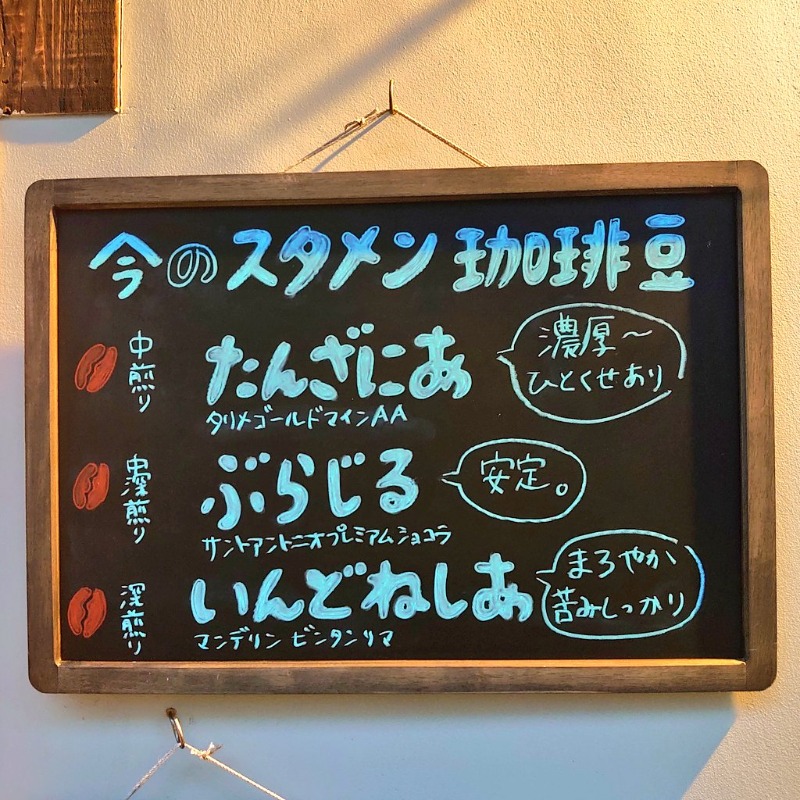 今のスタメン珈琲豆
中煎り
たんざにあ
タリメゴールドマインAA
濃厚〜
ひとくせあり
中深煎り
ぶらじる
サントアントニオプレミアムショコラ
安定。
深煎り
いんどねしあ
マンデリン ビンタンリマ
まろやか
苦みしっかり